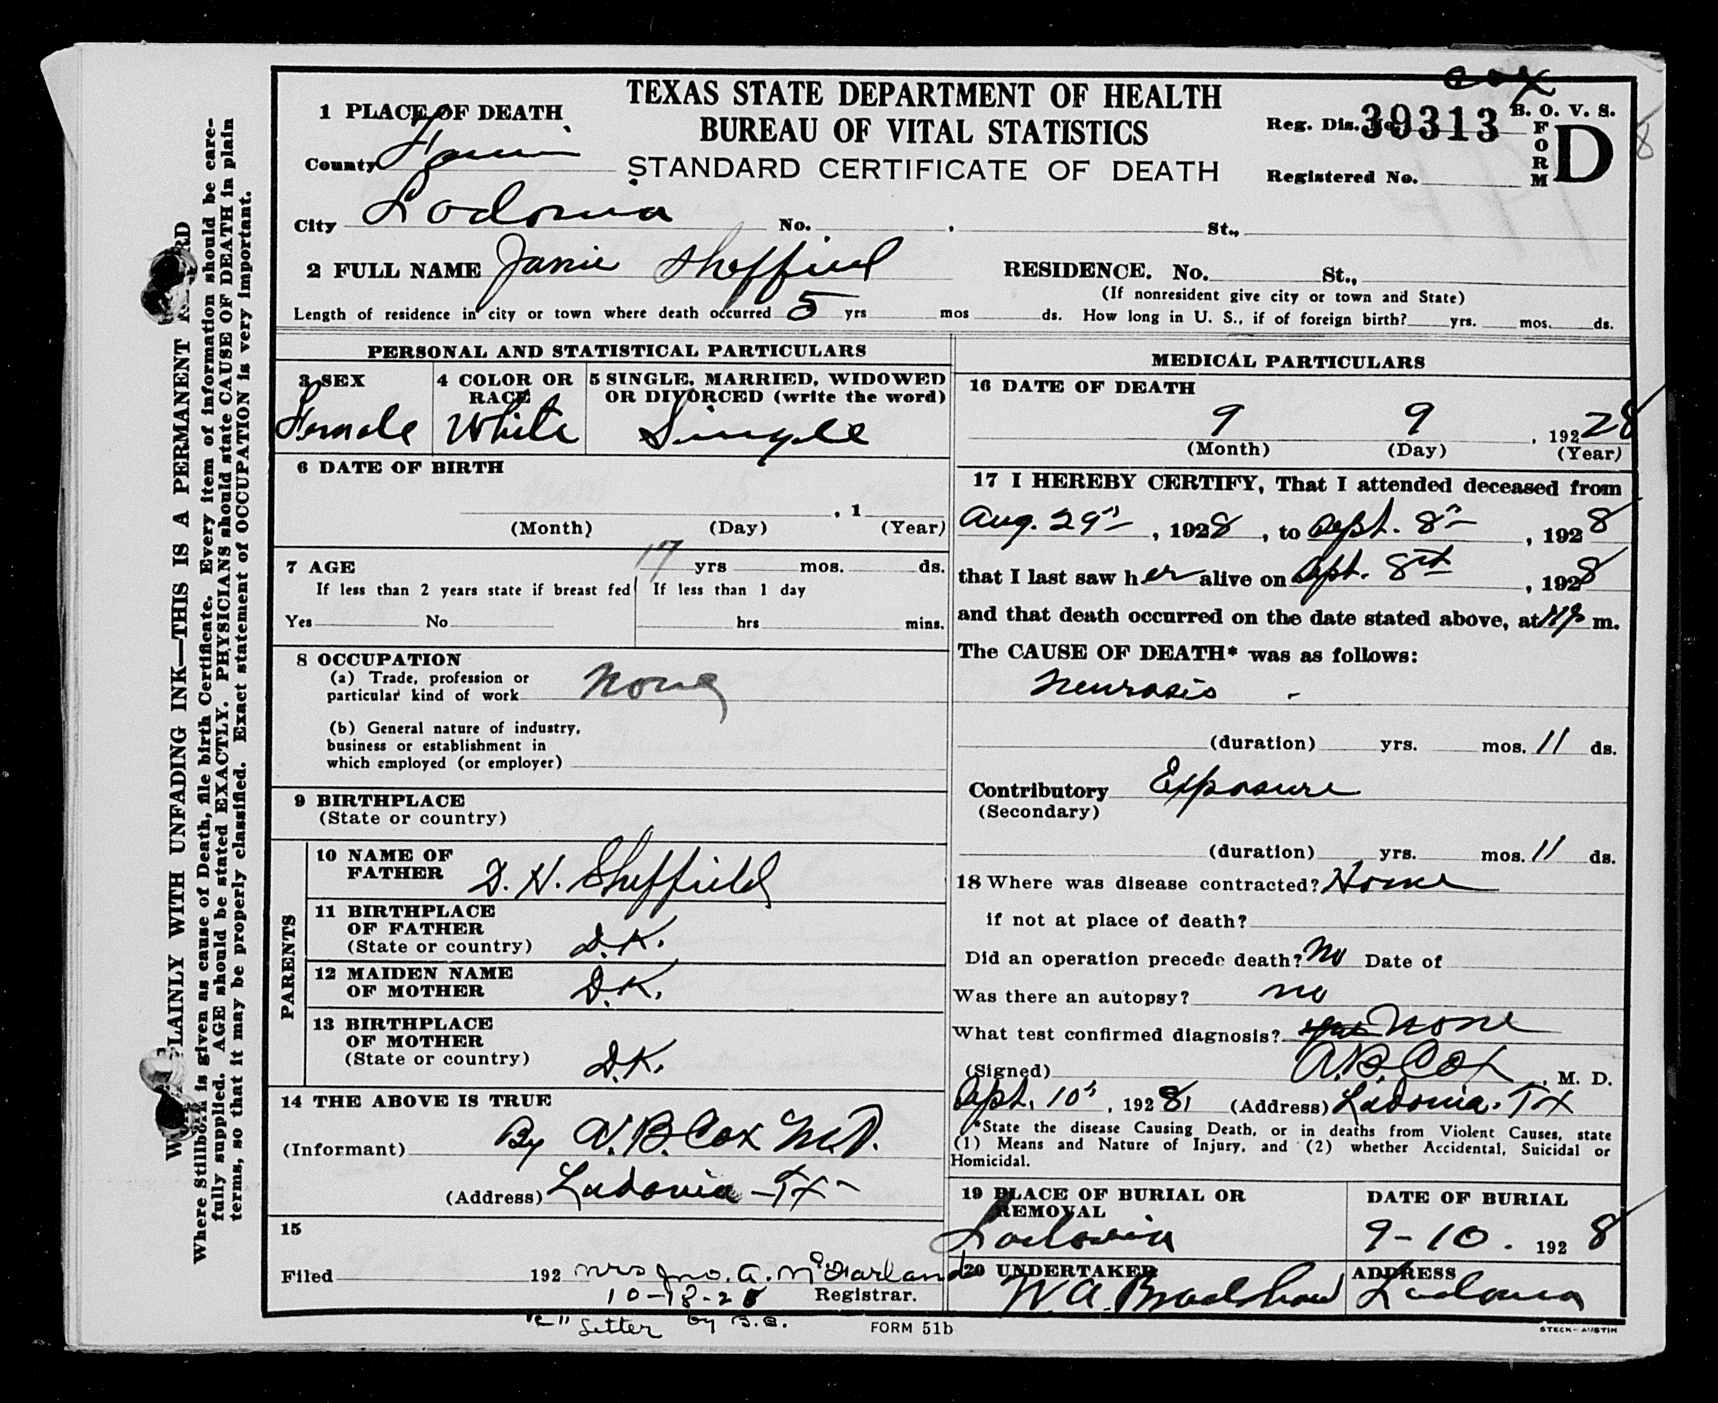 cox
TEXAS STATE DEPARTMENT OF HEALTH
BUREAU OF VITAL STATISTICS
STANDARD CERTIFICATE OF DEATH
1 PLACE OF DEATH
County
Reg. Dis. No. 39313
B. O. V. S.
FORM D
Registered No.
City Ladonia No. St.,
2 FULL NAME Janie Sheffield RESIDENCE. No. St.,
(If nonresident give city or town and State)
Length of residence in city or town where death occurred 5 yrs mos ds. How long in U. S., if of foreign birth? yrs. mos. ds.
PERSONAL AND STATISTICAL PARTICULARS
3 SEX
Female
4 COLOR OR RACE
White
5 SINGLE, MARRIED, WIDOWED
OR DIVORCED (write the word)
Single
6 DATE OF BIRTH
, 1
(Month) (Day) (Year)
7 AGE 17 yrs mos. ds.
If less than 2 years state if breast fed If less than 1 day
Yes No hrs mins.
8 OCCUPATION
(a) Trade, profession or
particular kind of work None
(b) General nature of industry,
business or establishment in
which employed (or employer)
9 BIRTHPLACE
(State or country)
PARENTS
10 NAME OF
FATHER D. H. Sheffield
11 BIRTHPLACE
OF FATHER
(State or country) D.K.
12 MAIDEN NAME
OF MOTHER D.K.
13 BIRTHPLACE
OF MOTHER
(State or country) D.K.
14 THE ABOVE IS TRUE
(Informant) By A.B. Cox M.D.
(Address) Ladonia Tx
15
Filed 192 Mrs Jno. A. McFarland
10-18-28 Registrar.
"E" Letter by B.C.
FORM 51b
MEDICAL PARTICULARS
16 DATE OF DEATH
9 9 , 192 28
(Month) (Day) (Year)
17 I HEREBY CERTIFY, That I attended deceased from
Aug. 29th, 1928, to Sept. 8th, 1928
that I last saw her alive on Sept. 8th, 1928
and that death occurred on the date stated above, at m.
The CAUSE OF DEATH* was as follows:
Neurosis
(duration) yrs. mos. 11 ds.
Contributory Exposure
(Secondary)
(duration) yrs. mos. 11 ds.
18 Where was disease contracted? Home
if not at place of death?
Did an operation precede death? No Date of
Was there an autopsy? no
What test confirmed diagnosis? None
(Signed) A.B. Cox, M. D.
Sept. 10th, 1928, (Address) Ladonia, Tx
*State the disease Causing Death, or in deaths from Violent Causes, state
(1) Means and Nature of Injury, and (2) whether Accidental, Suicidal or
Homicidal.
19 PLACE OF BURIAL OR
REMOVAL
Ladonia
DATE OF BURIAL
9-10. 1928
20 UNDERTAKER
W.A. Bradshaw
ADDRESS
Ladonia
STECK-AUSTIN
PLAINLY WITH UNFADING INK—THIS IS A PERMANENT
Where Stillborn is given as cause of Death, file birth Certificate. Every item of information should be care-
fully supplied. AGE should be stated EXACTLY. PHYSICIANS should state CAUSE OF DEATH in plain
terms, so that it may be properly classified. Exact statement of OCCUPATION is very important.